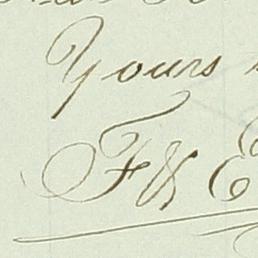 Yours
F & E